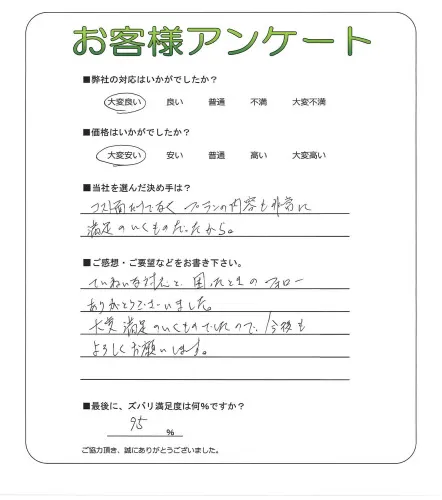 お客様アンケート
■弊社の対応はいかがでしたか？
大変良い 良い 普通 不満 大変不満
■価格はいかがでしたか？
大変安い 安い 普通 高い 大変高い
■当社を選んだ決め手は？
コスト面だけでなく プランの内容も非常に
満足のいくものだったから。
■ご感想・ご要望などをお書き下さい。
ていねいな対応と、困ったときのフォロー
ありがとうございました。
大変満足のいくものでしたので、今後も
よろしくお願いします。
■最後に、ズバリ満足度は何％ですか？
95 ％
ご協力頂き、誠にありがとうございました。